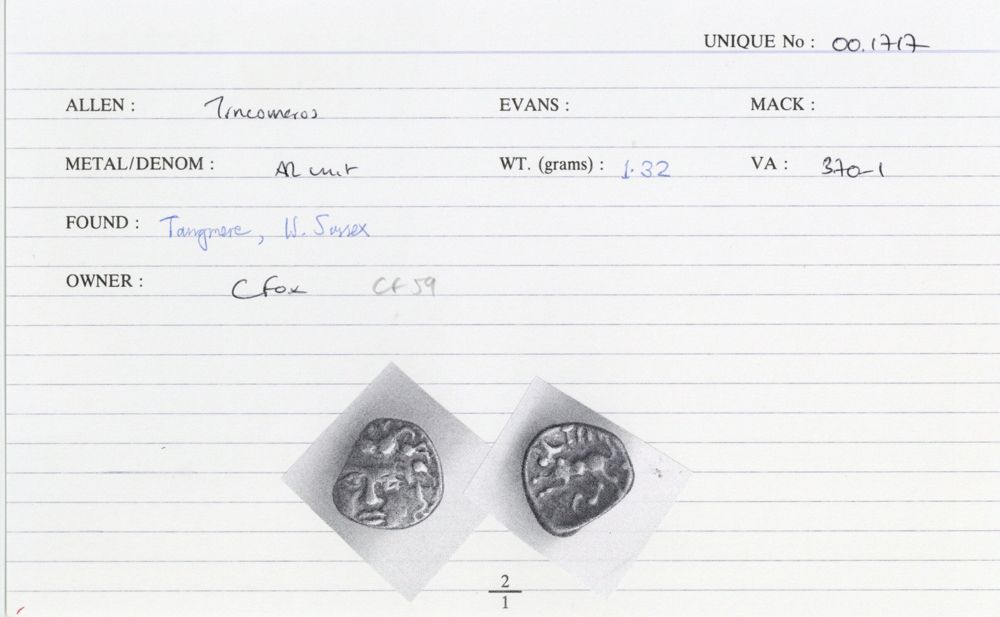 UNIQUE No : 00.1717
ALLEN : Tincomeros EVANS : MACK :
METAL/DENOM : AR unit WT. (grams) : 1.32 VA : 370-1
FOUND : Tangmere, W. Sussex
OWNER : C Fox CF 59
2
1